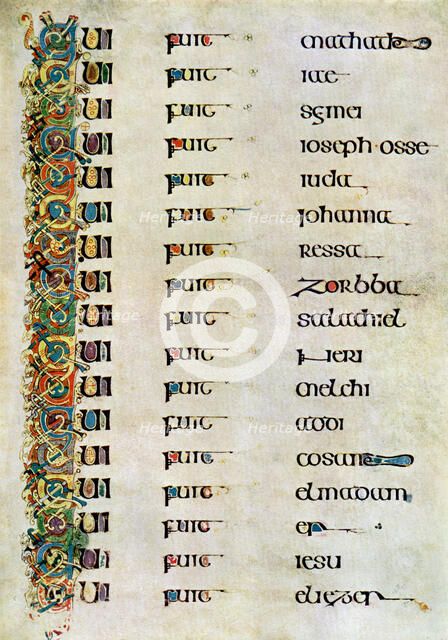 Qui fuit mathath
Qui fuit iae
Qui fuit semei
Qui fuit ioseph osse
Qui fuit iuda
Qui fuit iohanna
Qui fuit ressa
Qui fuit zorbba
Qui fuit salathiel
Qui fuit neri
Qui fuit melchi
Qui fuit addi
Qui fuit cosam
Qui fuit elmadam
Qui fuit er
Qui fuit iesu
Qui fuit eliezer
Heritage
Heritage
Heritage
Heritage
Heritage
Heritage